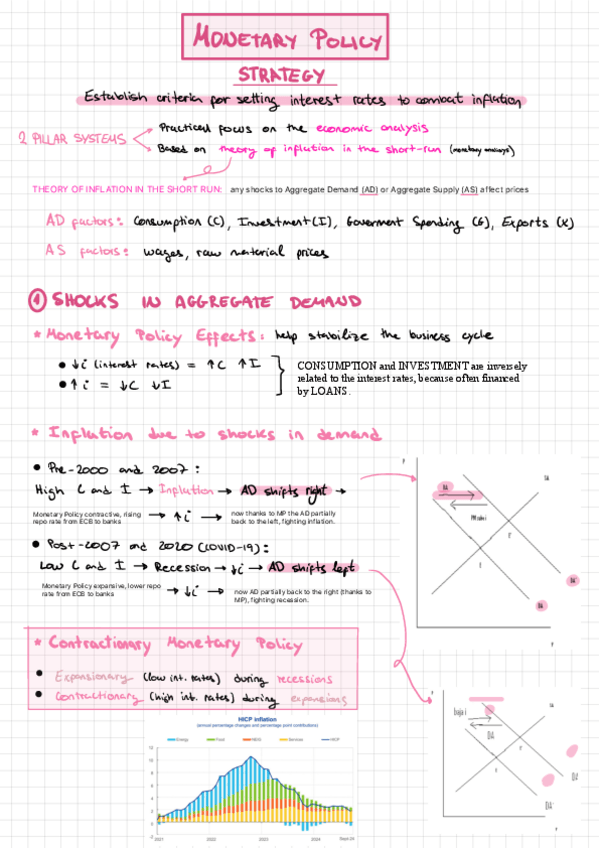 MONETARY POLICY
STRATEGY
Establish criteria for setting interest rates to combat inflation
2 PILLAR SYSTEMS
Practiced focus on the economic analysis
Based on theory of inflation in the short-run (monetary analysys)
THEORY OF INFLATION IN THE SHORT RUN: any shocks to Aggregate Demand (AD) or Aggregate Supply (AS) affect prices
AD factors: Consumption (C), Investment (I), Government Spending (G), Exports (X)
AS factors: wages, raw material prices
① SHOCKS IN AGGREGATE DEMAND
* Monetary Policy Effects: help stabilize the business cycle
• ↓i (interest rates) = ↑C ↑I
• ↑i = ↓C ↓I
CONSUMPTION and INVESTMENT are inversely
related to the interest rates, because often financed
by LOANS.
* Inflation due to shocks in demand
• Pre-2000 and 2007:
High C and I → Inflation → AD shifts right →
Monetary Policy contractive, rising
repo rate from ECB to banks
→ ↑i →
now thanks to MP the AD partially
back to the left, fighting inflation.
• Post-2007 and 2020 (COVID-19):
Low C and I → Recession → ↓i → AD shifts left
Monetary Policy expansive, lower repo
rate from ECB to banks
→ ↓i →
now AD partially back to the right (thanks to
MP), fighting recession.
P
OA
E'
E
DA
DA
DA
Y
* Contractionary Monetary Policy
• Expansionary (low int. rates) during recessions
• Contractionary (high int. rates) during expansions
P
OA
baja i
DA
E'
E
DA
DA
Y
HICP inflation
(annual percentage changes and percentage point contributions)
Energy Food NEIG Services HICP
12
10
8
6
4
2
0
-2
2021 2022 2023 2024 Sept-24